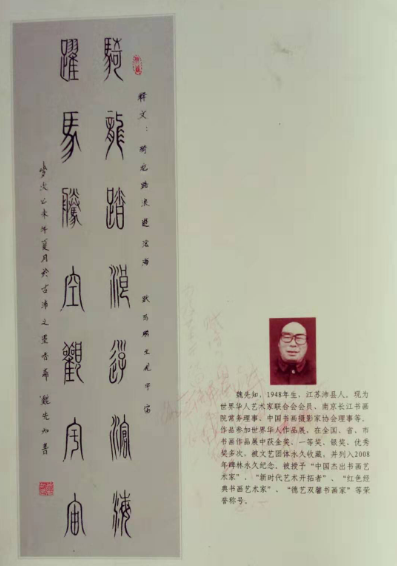 騎龍踏浪遊滄海
釋文：騎龙踏浪遊沧海 跃马腾空观宇宙
躍馬騰空觀宇宙
未年夏月於古沛之墨香斋 魏先如書
魏先如，1948年生，江苏沛县人。现为
世界华人艺术家联合会会员、南京长江书画
院常务理事、中国书画摄影家协会理事等。
作品参加世界华人作品展，在全国、省、市
书画作品展中获金奖、一等奖、银奖、优秀
奖多次。被文艺团体永久收藏，并列入2008
年碑林永久纪念。被授予“中国杰出书画艺
术家”、“新时代艺术开拓者”、“红色经
典书画艺术家”、“德艺双馨书画家”等荣
誉称号。